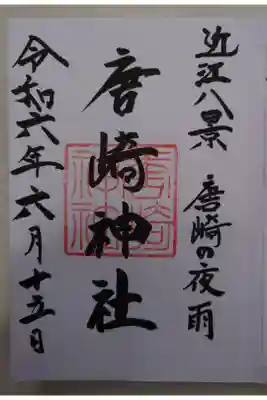 近江八景 唐崎の夜雨
唐崎神社
令和六年六月十五日